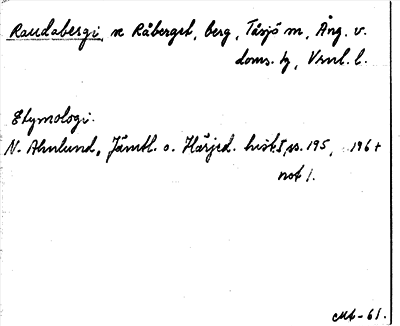 Raudabergi, n Råberget, berg, Tåsjö sn, Ång. v.
doms. tg, Vnrl. l.
Etymologi.
N. Ahnlund, Jämtl. o. Härjed. hist. I, ss. 195, 196 +
not 1.
-61.